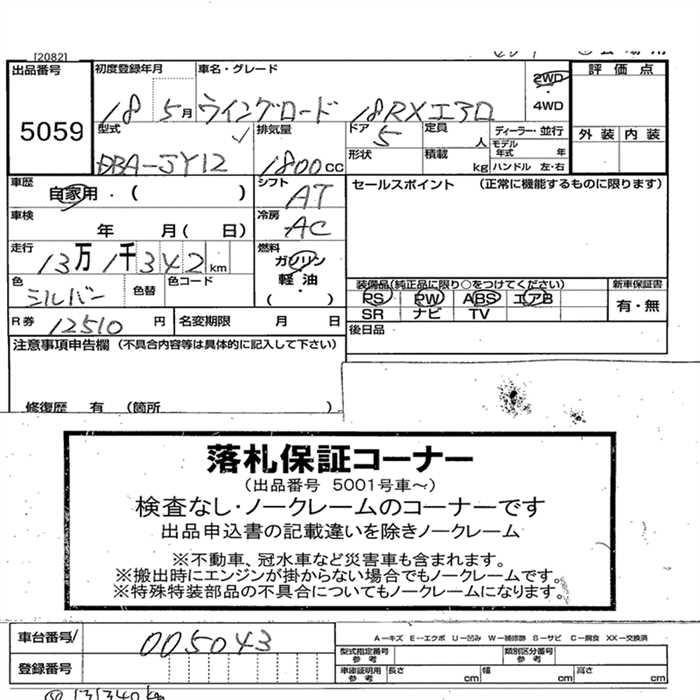 [2082]
出品番号 初度登録年月 車名・グレード 2WD 評価点
5059 18 5月 ウイングロード 18RXエアロ 4WD
外装 内装
型式 排気量 ドア 5 定員 人 ディーラー・並行
DBA-JY12 1800cc 形状 積載 kg モデル年式 年
ハンドル 左・右
車歴 自家用・( ) シフト AT セールスポイント (正常に機能するものに限ります)
車検 年 月( 日) 冷房 AC
走行 13万1千342km 燃料 ガソリン
軽油
( )
色 シルバー 色替 色コード
装備品(純正品に限り○をつけてください) 新車保証書
PS PW ABS エアB 有・無
SR ナビ TV
R券 12510円 名変期限 月 日 後日品
注意事項申告欄 (不具合内容等は具体的に記入して下さい)
修復歴 有 (箇所 )
落札保証コーナー
(出品番号 5001号車~)
検査なし・ノークレームのコーナーです
出品申込書の記載違いを除きノークレーム
※不動車、冠水車など災害車も含まれます。
※搬出時にエンジンが掛からない場合でもノークレームです。
※特殊特装部品の不具合についてもノークレームになります。
車台番号 005043 A－キズ E－エクボ U－凹み W－補修跡 S－サビ C－腐食 XX－交換済
型式指定番号 参考 類別区分番号 参考
登録番号 車庫証明用 参考 長さ cm 幅 cm 高さ cm
131340km